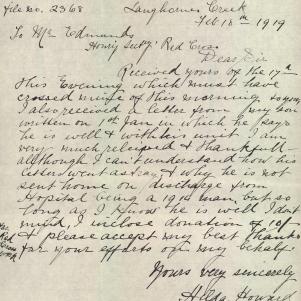 File No. 2368 Langhornes Creek
Feb 18th 1919
To Mr Edmunds
Honry Secty Red Cross
Dear Sir
Received yours of the 17th
This Evening which must have
crossed mine of this morning to you
I also received a letter from my son
written on 1st Jan in which he says
he is well & with his unit. I am
very much relieved & thankfull
although I can't understand how his
letters went astray & why he is not
sent home on discharge from
Hospital being a 1914 man, but so
long as I know he is well I don't
mind, I inclose donation of
& please accept my best thanks
for your efforts on my behalf
Red
Cross
work
Yours very sincerely
Hilda Howard